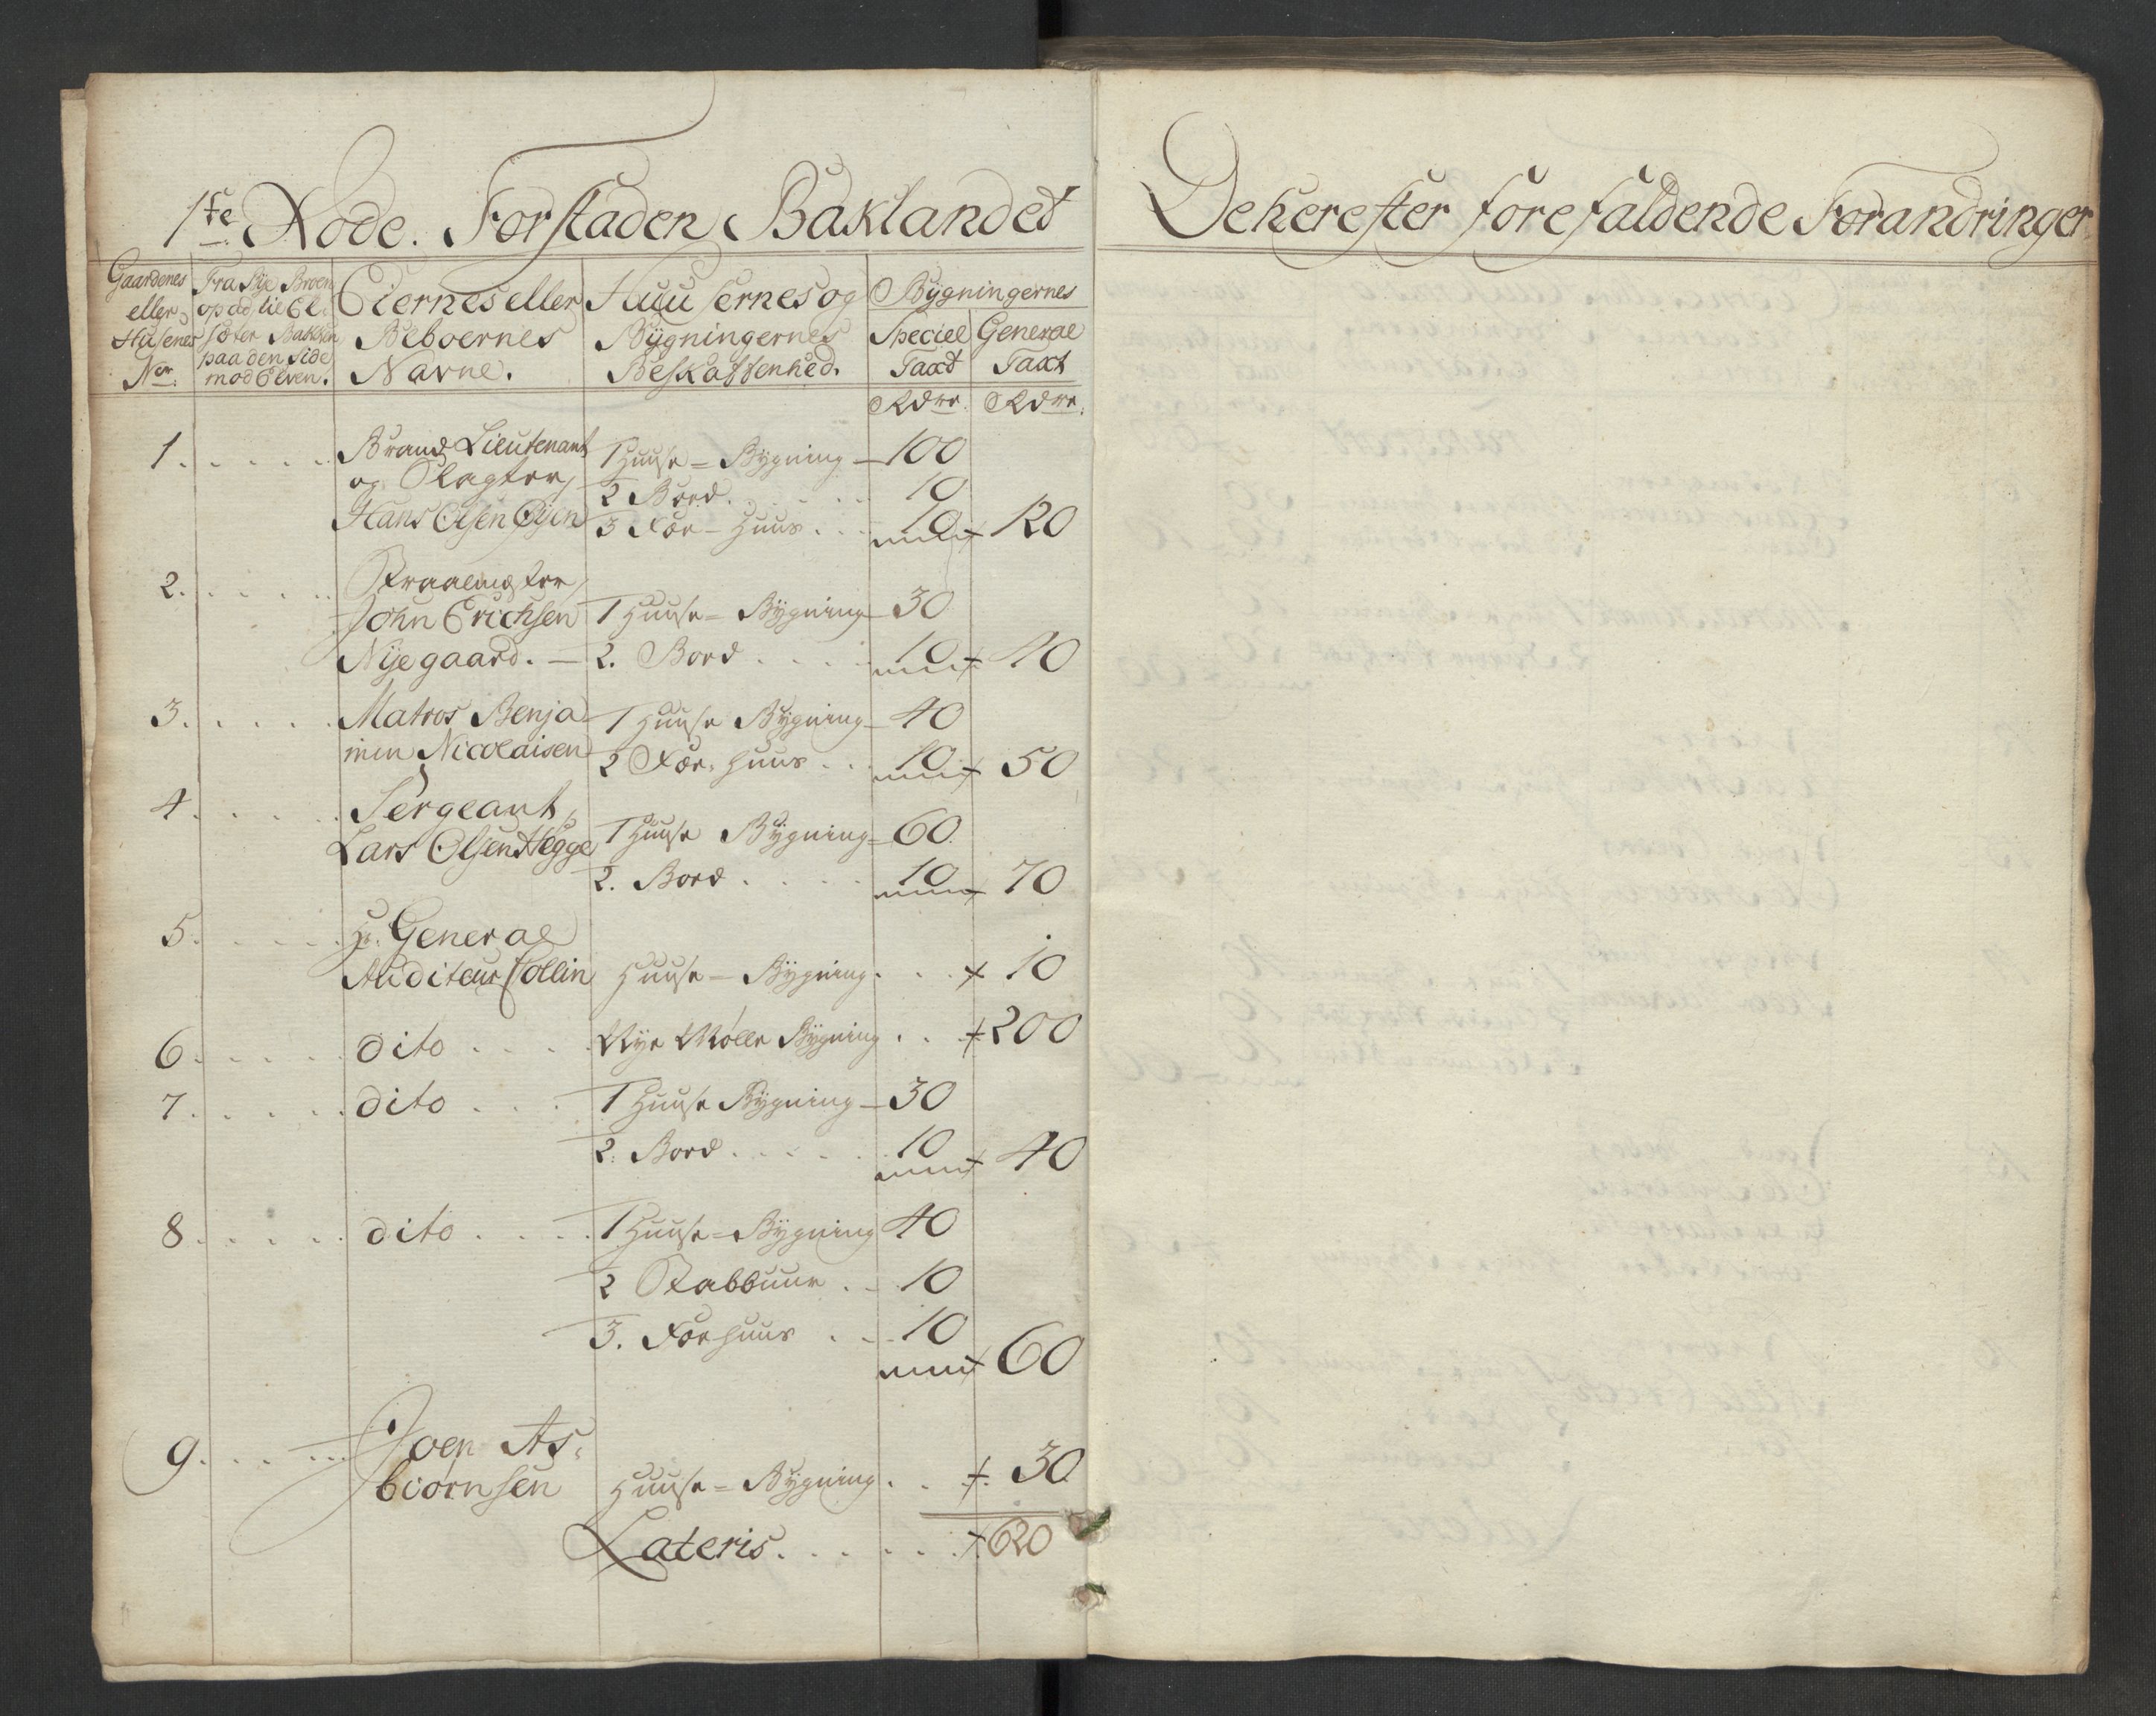 1ste Rode. Forstaden Baklandet
Gaardenes
eller
Husenes
No.
Fra Nye Broen
opad lil El
sæter Bakken
paa den Side
mod Elven.
Eiernes eller
Beboernes
Navne.
Huusernes og
Bygningernes
Beskaffenhed.
Bygningernes
Speciel Taxt
General Taxt
Rdr. Rdr.
1. Brand Lieutenant 1 Huuse-Bygning 100
og Slagter 2 Bord 10
Hans Olsen Øyen 3 Fær-huus 10 120
2. Straalmester
John Erichsen 1 Huuse-Bygning 30
Nÿegaard. 2. Bord 10 40
3. Matros Benja 1 Huuse Bygning 40
min Nicolaisen 2 Fær-huus 10 50
4. Sergeant
Lars Olsen Hegge 1 Huuse Bygning 60
2. Bord 10 70
5. Hr. General
Auditeur Collin Huuse-Bygning 10
6. dito Nye Mølle Bygning 200
7. dito 1 Huuse Bygning 30
2. Bord 10 40
8. dito 1 Huuse-Bygning 40
2 Stabbuur 10
3. Færhuus 10
60
9. Joen As-
biørnsen Huuse-Bygning 30
Lateris 620
De herefter forefaldende Forandringer